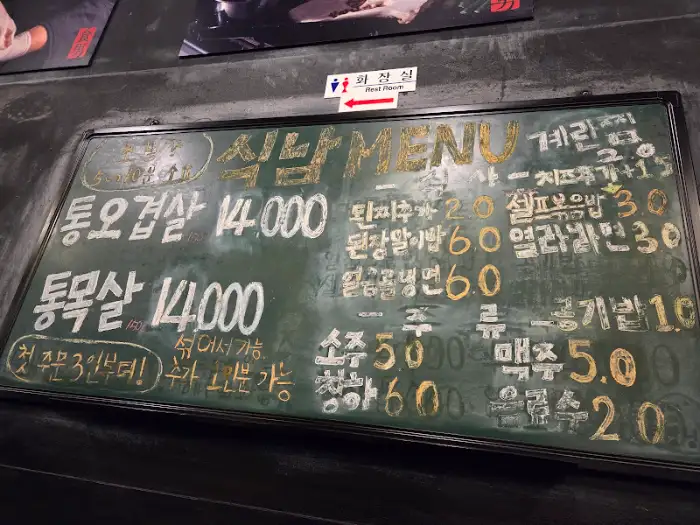 화장실
Rest Room
식남 MENU
계란찜
5~10분 소요
통오겹살 150g 14,000
통목살 150g 14,000
첫 주문 3인부터!
섞어서 가능
추가 1인분 가능
- 식 사 -
치즈추가+1.5
된찌추가 2.0
셀프볶음밥 3.0
된장말이밥 6.0
열라라면 3.0
얼음물냉면 6.0
- 주 류 -
공기밥 1.0
소주 5.0
맥주 5.0
청하 6.0
음료수 2.0